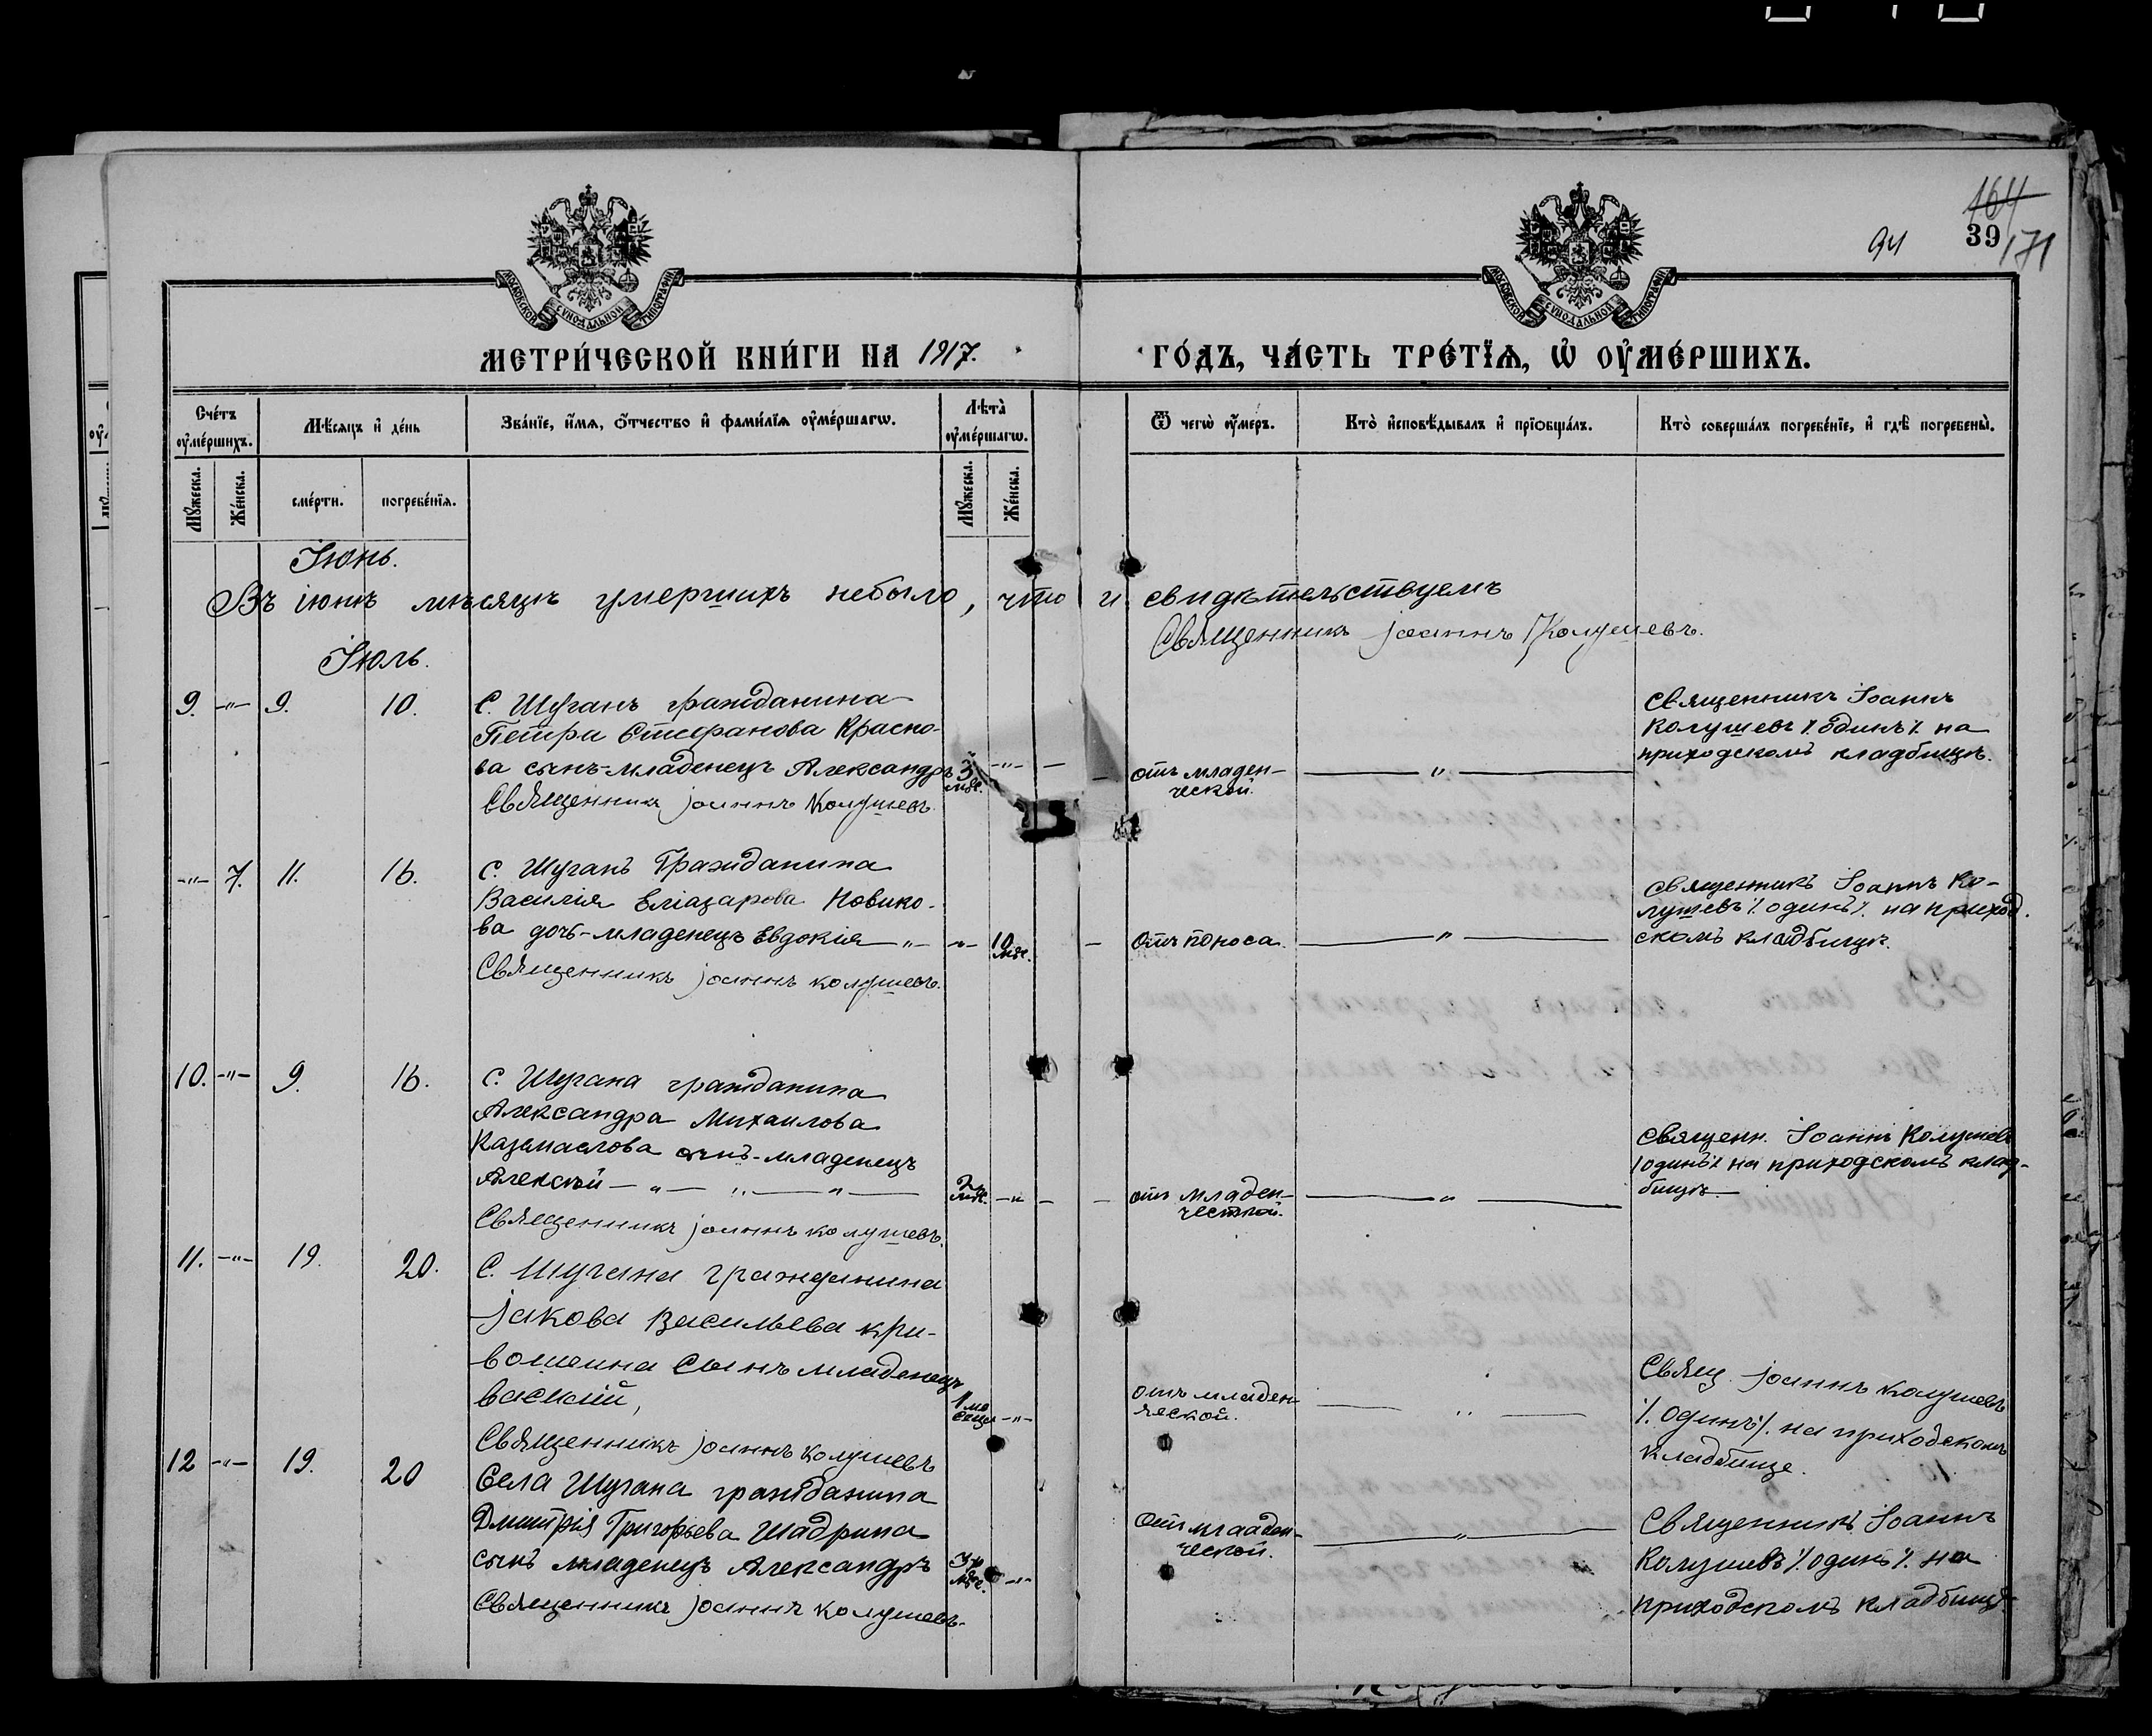 164
94
39
171
МОСКОВСКОЙ СѴНОДАЛЬНОЙ ТИПОГРАФІИ
МОСКОВСКОЙ СѴНОДАЛЬНОЙ ТИПОГРАФІИ
МЕТРИ́ЧЕСКОЙ КНИ́ГИ НА 1917. ГО́ДЪ, ЧА́СТЬ ТРЕ́ТЇѦ, Ѡ҆ ОУ҆МЕ́РШИХЪ.
Сче́тъ оу҆ме́ршихъ.
Мѣ́сѧцъ и҆ де́нь
Зва́нїе, и҆́мѧ, ѻ҆́тчество и҆ фами́лїѧ оу҆ме́ршагѡ.
Лѣ́та оу҆ме́ршагѡ.
Ѿ чегѡ̀ оу҆́меръ.
Кто̀ и҆сповѣ́дывалъ и҆ прїѡбща́лъ.
Кто̀ соверша́лъ погребе́нїе, и҆ гдѣ̀ погребены̀.
Мꙋ́жеска.
Же́нска.
сме́рти.
погребе́нїѧ.
Мꙋ́жеска.
Же́нска.
Іюнь.
Въ іюнѣ мѣсяцѣ умершихъ небыло, что и свидѣтельствуемъ
Священникъ Іоаннъ Колушевъ.
Іюль.
9. -"- 9. 10. С. Шуганъ гражданина
Петра Стефанова Красно-
ва сынъ-младенецъ Александръ 3 мѣс. -"-
Священникъ Іоаннъ Колушевъ.
отъ младен-
ческой.
"
Священникъ Іоаннъ
Колушевъ ./. одинъ ./. на
приходскомъ кладбищѣ.
-"- 7. 11. 16. С. Шуганъ Гражданина
Василія Еліазарова Новико-
ва дочь-младенецъ Евдокія -"- -"- 10 мѣс.
Священникъ Іоаннъ Колушевъ.
Отъ поноса.
"
Священникъ Іоаннъ Ко-
лушевъ ./. одинъ ./. на приход-
скомъ кладбищѣ.
10. -"- 9. 16. С. Шугана гражданина
Александра Михаилова
сынъ-младенецъ
Алексѣй -"- -"- -"- 2 мѣс. -"-
Священникъ Іоаннъ Колушевъ.
отъ младен-
ческой.
"
Священн. Іоаннъ Колушевъ
./. одинъ ./. на приходскомъ клад-
бищѣ.
11. -"- 19. 20. С. Шугана гражданина
Іакова Васильева Кри-
вошеина сынъ младенецъ
Василій, -"-
Священникъ Іоаннъ Колушевъ
отъ младен-
ческой.
"
Свящ. Іоаннъ Колушевъ
./. одинъ ./. на приходскомъ
кладбище.
12 -"- 19. 20 Села Шугана гражданина
Дмитрія Григорьева Шадрина
сынъ младенецъ Александръ 3 мѣс. -"-
Священникъ Іоаннъ Колушевъ.
Отъ младен-
ческой.
"
Священникъ Іоаннъ
Колушевъ ./. одинъ ./. на
приходскомъ кладбищѣ.